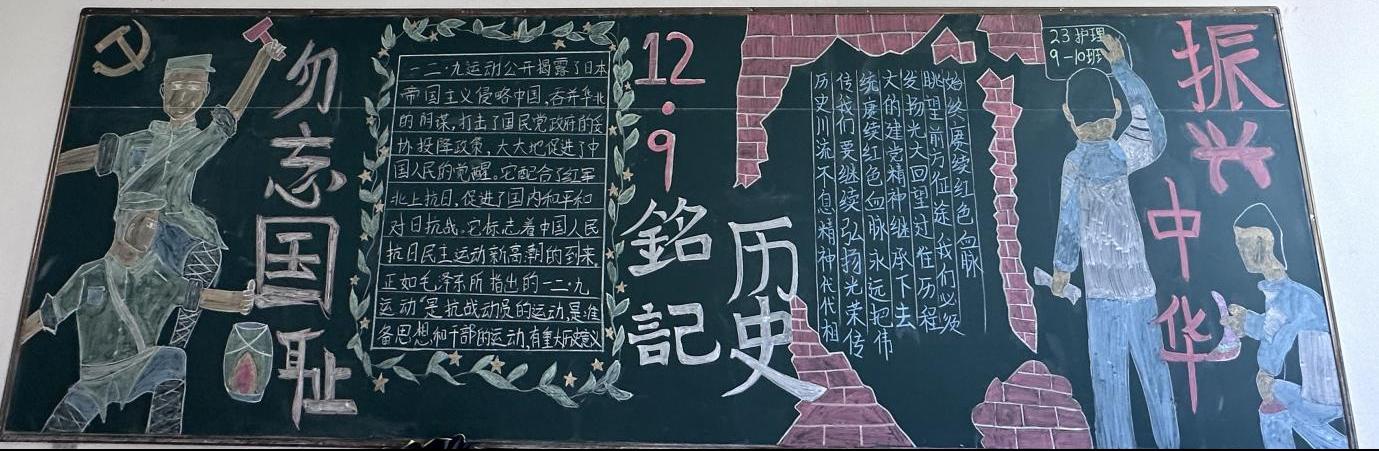 勿忘国耻
一二·九运动公开揭露了日本
帝国主义侵略中国,吞并华北
的阴谋,打击了国民党政府的妥
协投降政策,大大地促进了中
国人民的觉醒。它配合了红军
北上抗日,促进了国内和平和
对日抗战。它标志着中国人民
抗日民主运动新高潮的到来。
正如毛泽东所指出的一二·九
运动"是抗战动员的运动,是准
备思想和干部的运动,有重大历史意义
12·9
銘記
历史
历史川流不息精神代代相
传我们要继续弘扬光荣传
统赓续红色血脉永远把伟
大的建党精神继承下去
发扬光大回望过往历程
眺望前方征途我们必须
始终赓续红色血脉
23护理
9-10班
振兴中华